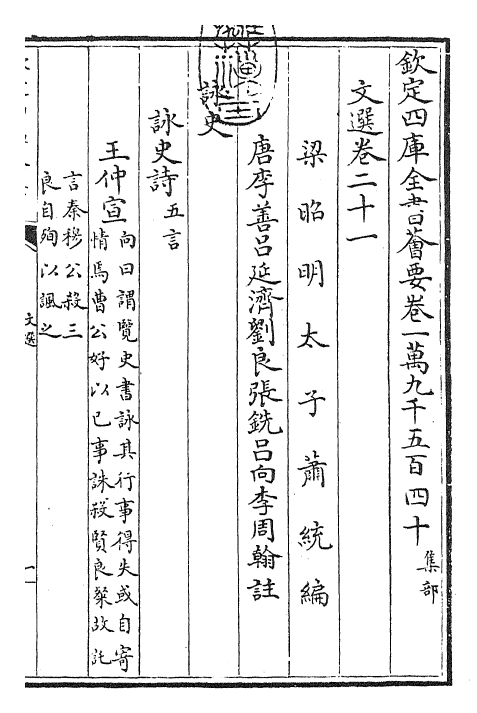 欽定四庫全書薈要卷一萬九千五百四十 集部
文選卷二十一
梁昭明太子蕭統編
唐李善呂延濟劉良張銑呂向李周翰註
詠史
詠史詩五言
王仲宣 向曰謂覽史書詠其行事得失或自寄
情焉曹公好以已事誅殺賢良粲故託
言秦穆公殺三
良自殉以諷之
文選
一